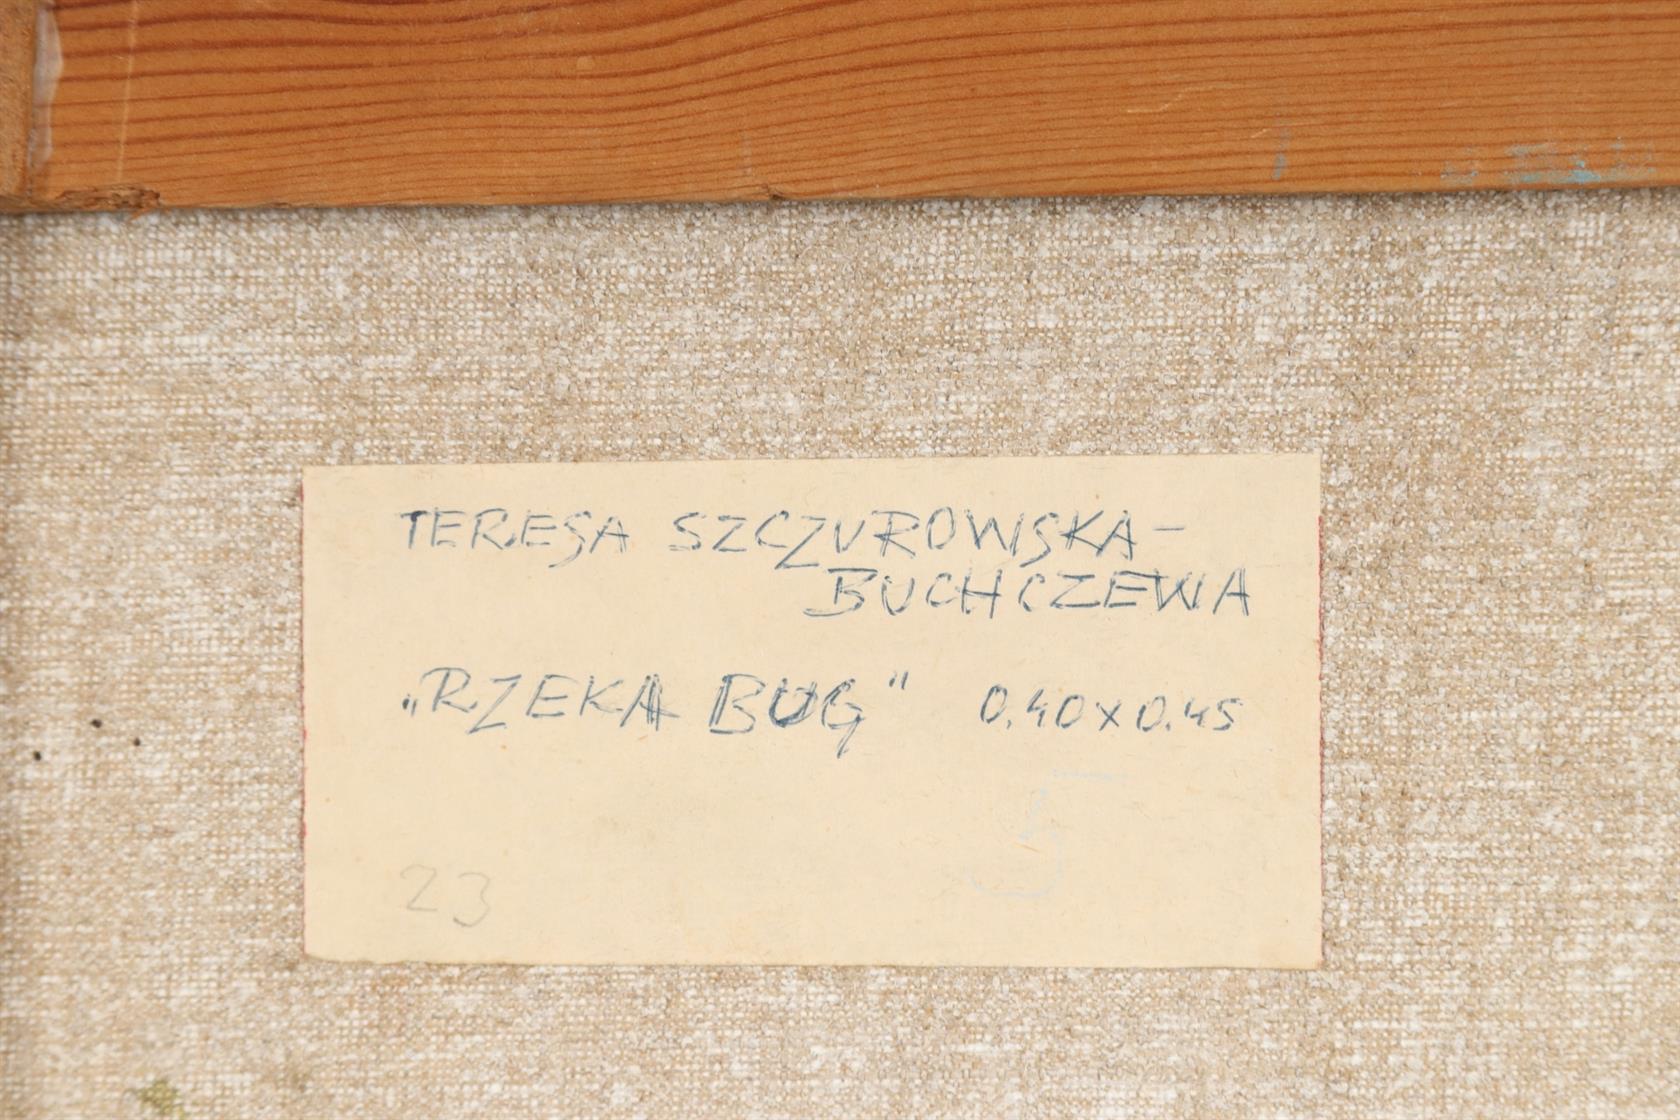 TERESA SZCZUROWSKA-
BUCHCZEWA
„RZEKA BUG" 0.40x0.45
5
23